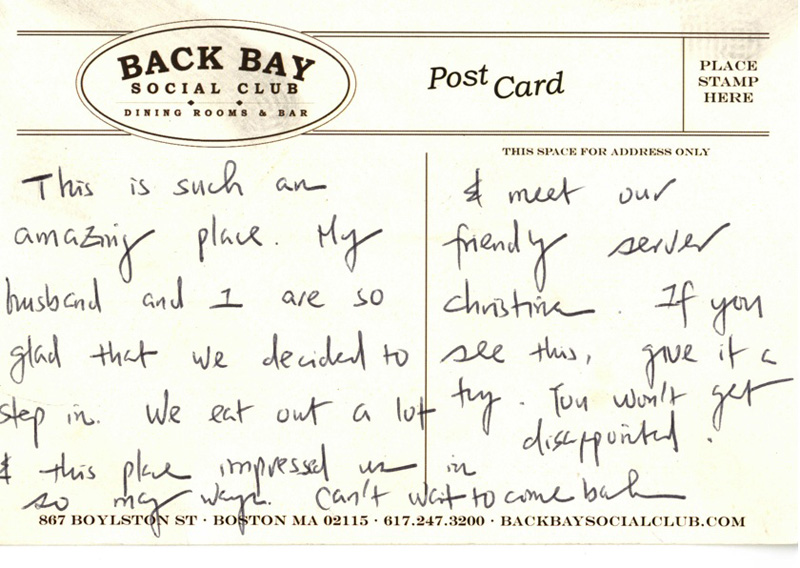 BACK BAY
SOCIAL CLUB
DINING ROOMS & BAR
Post Card
PLACE
STAMP
HERE
THIS SPACE FOR ADDRESS ONLY
This is such an
amazing place. My
husband and I are so
glad that we decided to
step in. We eat out a lot
& this place impressed us in
so many ways. Can't wait to come back
& meet our
friendly server
christina. If you
see this, give it a
try. You won't get
disappointed.
867 BOYLSTON ST · BOSTON MA 02115 · 617.247.3200 · BACKBAYSOCIALCLUB.COM